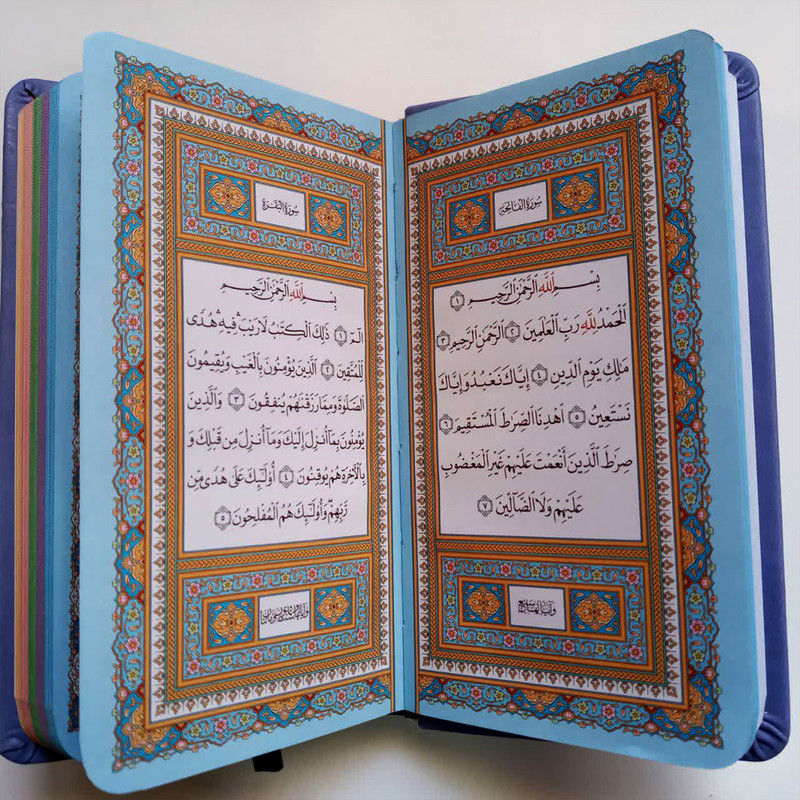 سُورَةُ الْفَاتِحَةِ
بِسْمِ اللَّهِ الرَّحْمَٰنِ الرَّحِيمِ ١
الْحَمْدُ لِلَّهِ رَبِّ الْعَالَمِينَ ٢ الرَّحْمَٰنِ الرَّحِيمِ ٣
مَالِكِ يَوْمِ الدِّينِ ٤ إِيَّاكَ نَعْبُدُ وَإِيَّاكَ
نَسْتَعِينُ ٥ اهْدِنَا الصِّرَاطَ الْمُسْتَقِيمَ ٦
صِرَاطَ الَّذِينَ أَنْعَمْتَ عَلَيْهِمْ غَيْرِ الْمَغْضُوبِ
عَلَيْهِمْ وَلَا الضَّالِّينَ ٧
سُورَةُ الْبَقَرَةِ
بِسْمِ اللَّهِ الرَّحْمَٰنِ الرَّحِيمِ
الم ١ ذَٰلِكَ الْكِتَٰبُ لَا رَيْبَ فِيهِ هُدًى
لِلْمُتَّقِينَ ٢ الَّذِينَ يُؤْمِنُونَ بِالْغَيْبِ وَيُقِيمُونَ
الصَّلَوٰةَ وَمِمَّا رَزَقْنَٰهُمْ يُنْفِقُونَ ٣ وَالَّذِينَ
يُؤْمِنُونَ بِمَا أُنْزِلَ إِلَيْكَ وَمَا أُنْزِلَ مِنْ قَبْلِكَ وَ
بِالْآخِرَةِ هُمْ يُوقِنُونَ ٤ أُولَٰئِكَ عَلَىٰ هُدًى مِنْ
رَبِّهِمْ وَأُولَٰئِكَ هُمُ الْمُفْلِحُونَ ٥